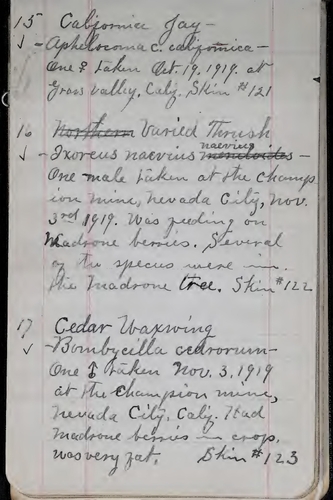 15 California Jay -
✓ - Aphelocoma c. californica -
One ♀ taken Oct. 19, 1919. at
Grass valley. Calif. Skin #121
16 Northern Varied Thrush
naevius
✓ - Ixoreus naevius meruloides -
One male taken at the Champ
ion mine, Nevada City, Nov.
3rd 1919. Was feeding on
Madrone berries. Several
of the species were in
the madrone tree. Skin #122
17 Cedar Waxwing
✓ - Bombycilla cedrorum -
One taken Nov. 3, 1919
at the Champion mine,
Nevada City, Calif. Had
madrone berries in crop.
was very fat. Skin #123